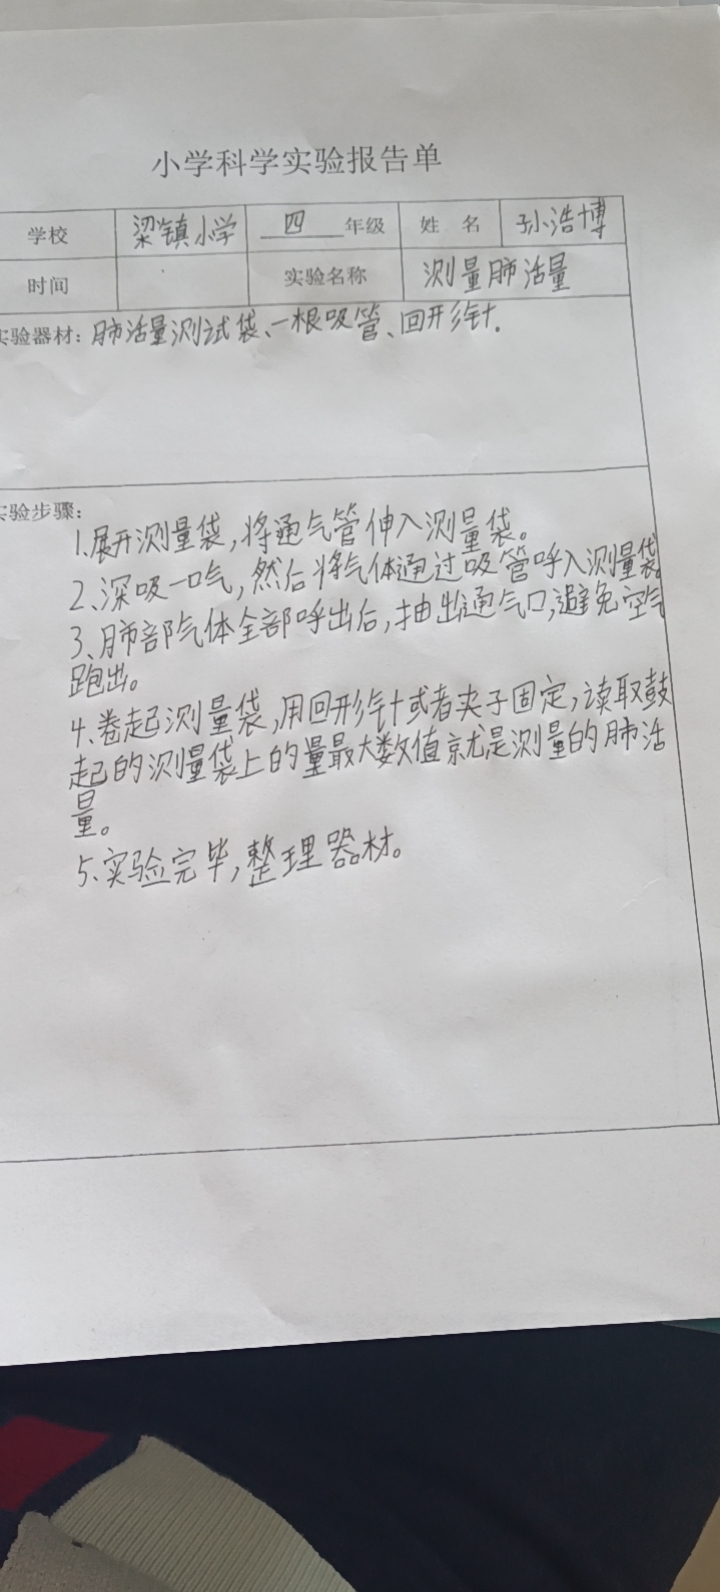 小学科学实验报告单
学校 梁镇小学 四年级 姓 名 孙浩博
时间 实验名称 测量肺活量
实验器材：肺活量测试袋、一根吸管、回形针.
实验步骤：
1.展开测量袋,将通气管伸入测量袋。
2、深吸一口气,然后将气体通过吸管呼入测量袋。
3、肺部气体全部呼出后,抽出通气口,避免空气
跑出。
4、卷起测量袋,用回形针或者夹子固定,读取鼓
起的测量袋上的量最大数值就是测量的肺活
量。
5、实验完毕,整理器材。